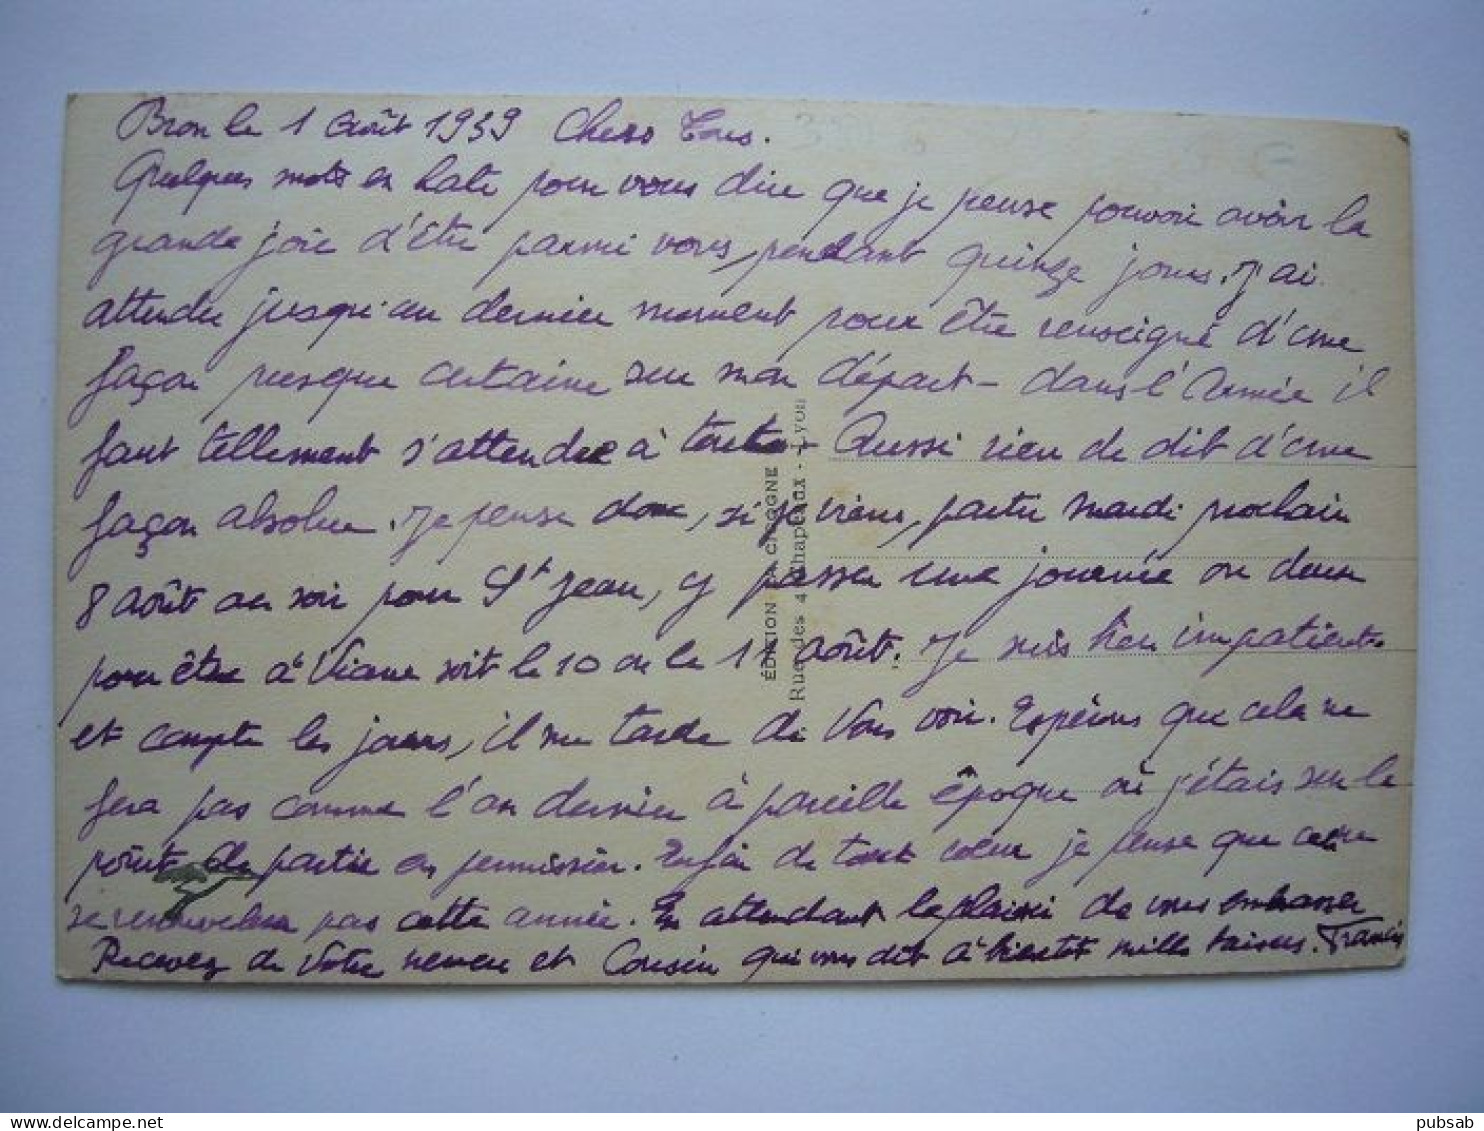 Bron le 1 Août 1939 Chers Tous.
Quelques mots en hate pour vous dire que je pense pouvoir avoir la
grande joie d'être parmi vous, pendant quinze jours. J'ai
attendu jusqu'au dernier moment pour être renseigné d'une
façon presque certaine sur mon départ - dans l'Armée il
faut tellement s'attendre à tout - Aussi rien de dit d'une
façon absolue. Je pense donc, si je viens, partir Mardi prochain
8 août au soir pour St Jean, y passer une journée ou deux
pour être à Viane soit le 10 ou le 11 août. Je suis bien impatient
et compte les jours, il me tarde de Vous voir. Espérons que cela ne
fera pas comme l'an dernier à pareille époque où j'étais sur le
point de partir en permission. Enfin de tout cœur je pense que cela ne
se renouvelera pas cette année. En attendant le plaisir de vous embrasser
Recevez de Votre neveu et Cousin qui vous dit à bientot mille baisers. Francis
ÉDITION CIGOGNE
Rue des 4 Chapeaux - Lyon
pubsab